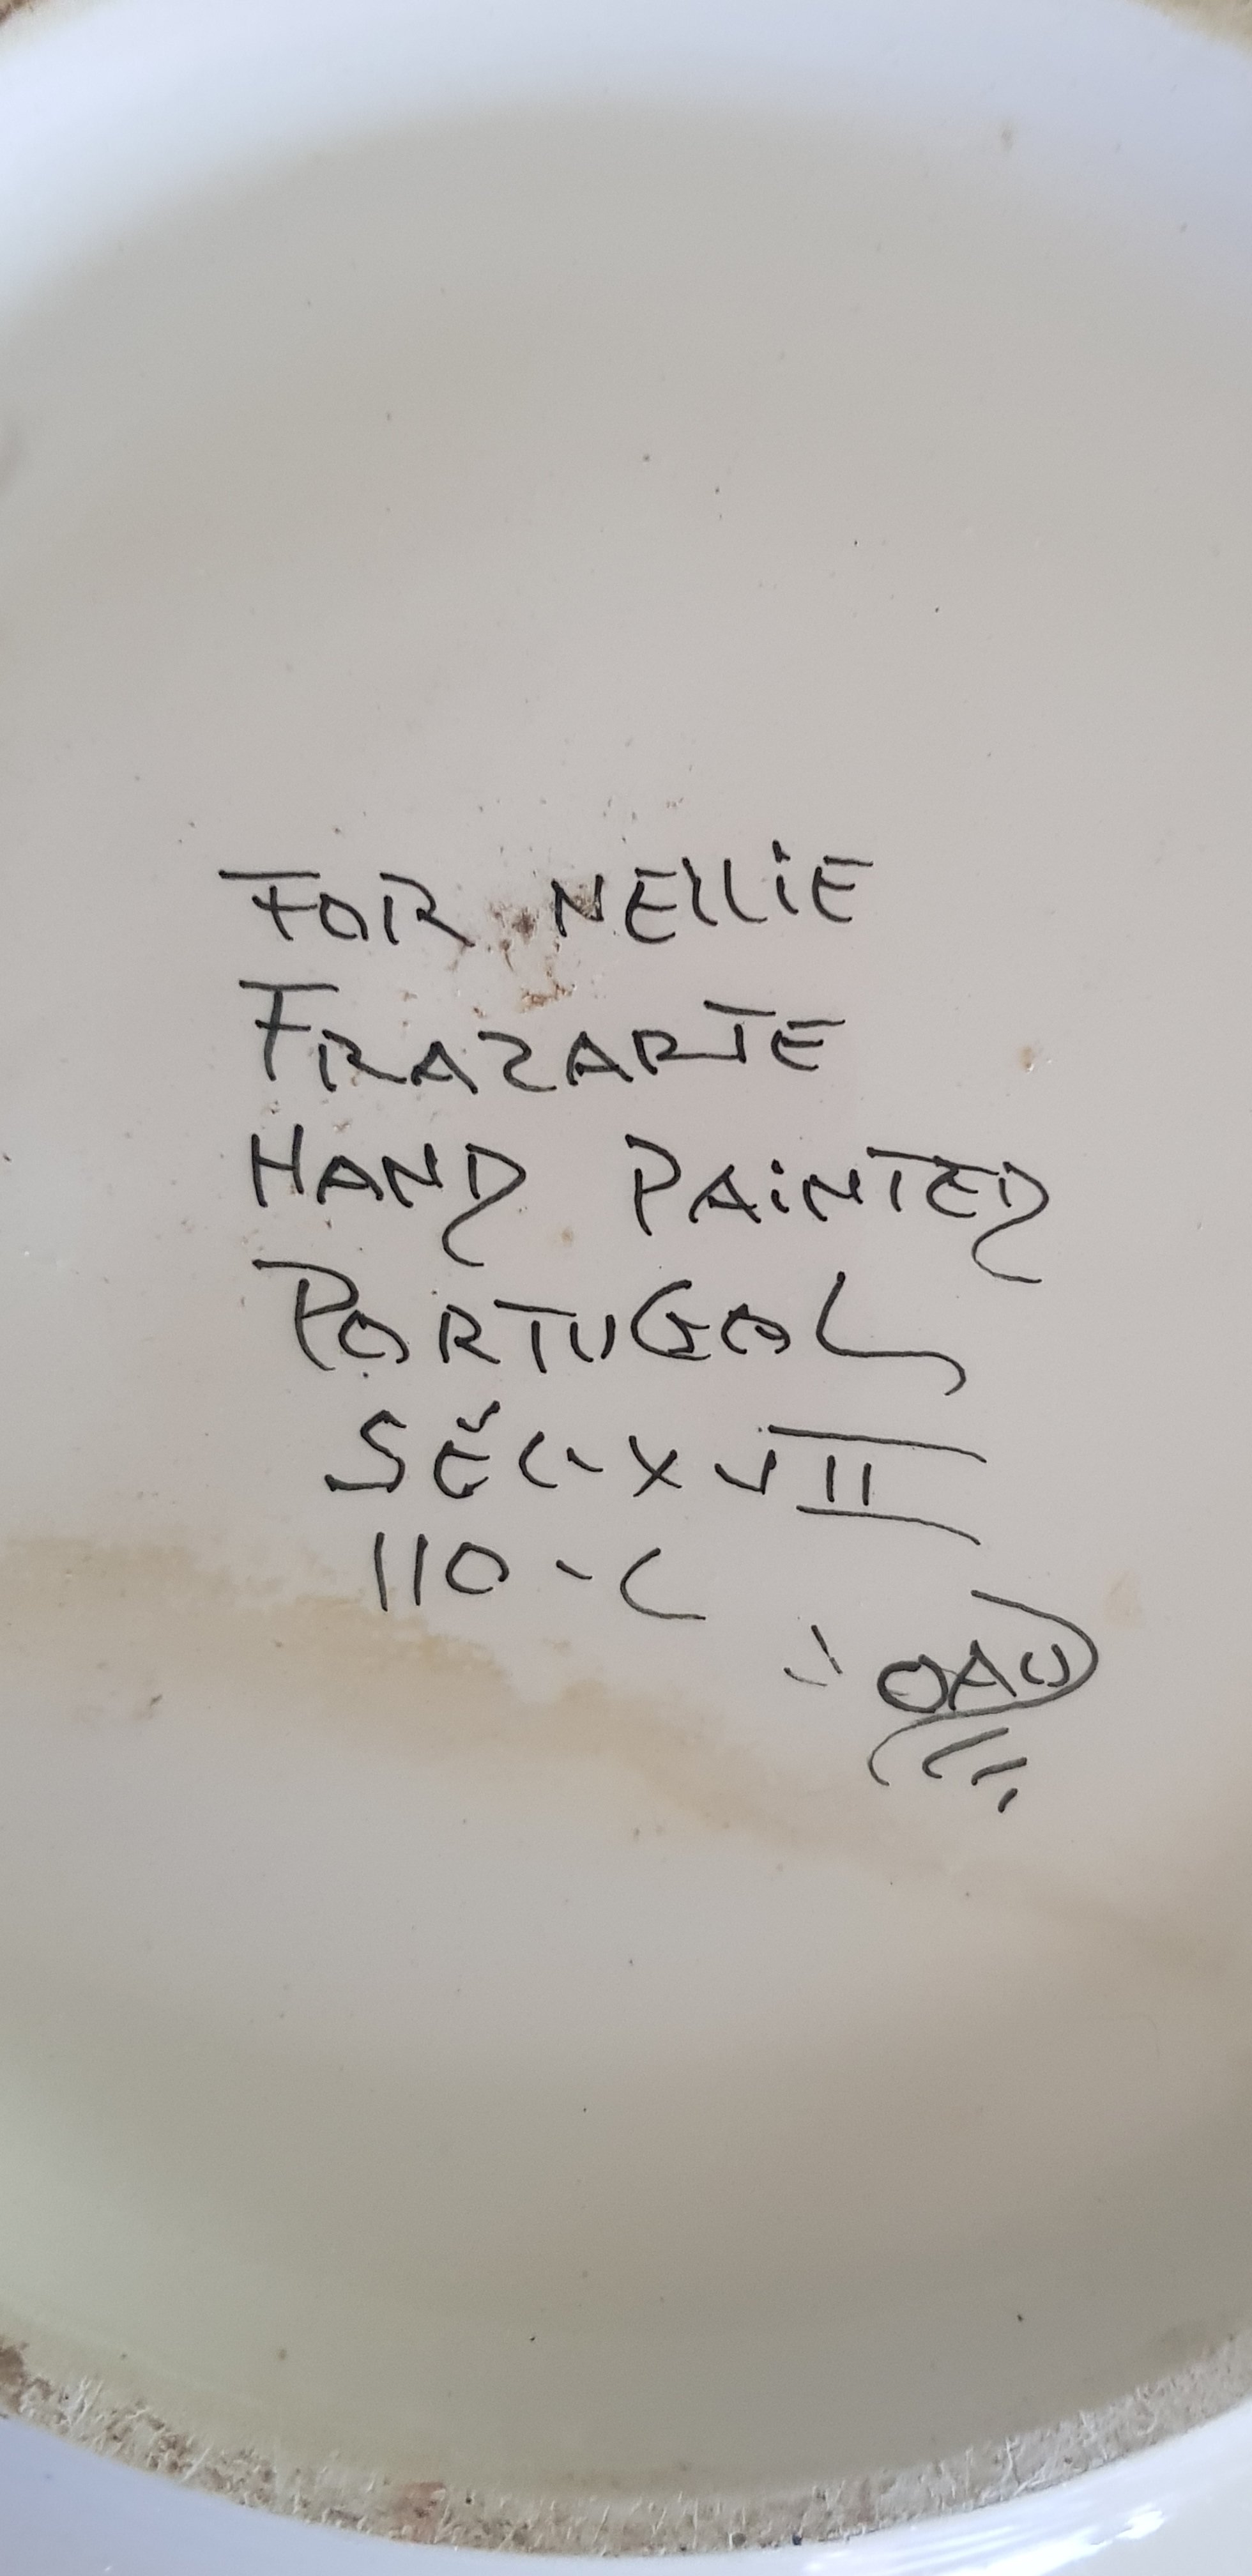 FOR NELLIE
FRAZARTE
HAND PAINTED
PORTUGAL
SÉC-XVII
110-C